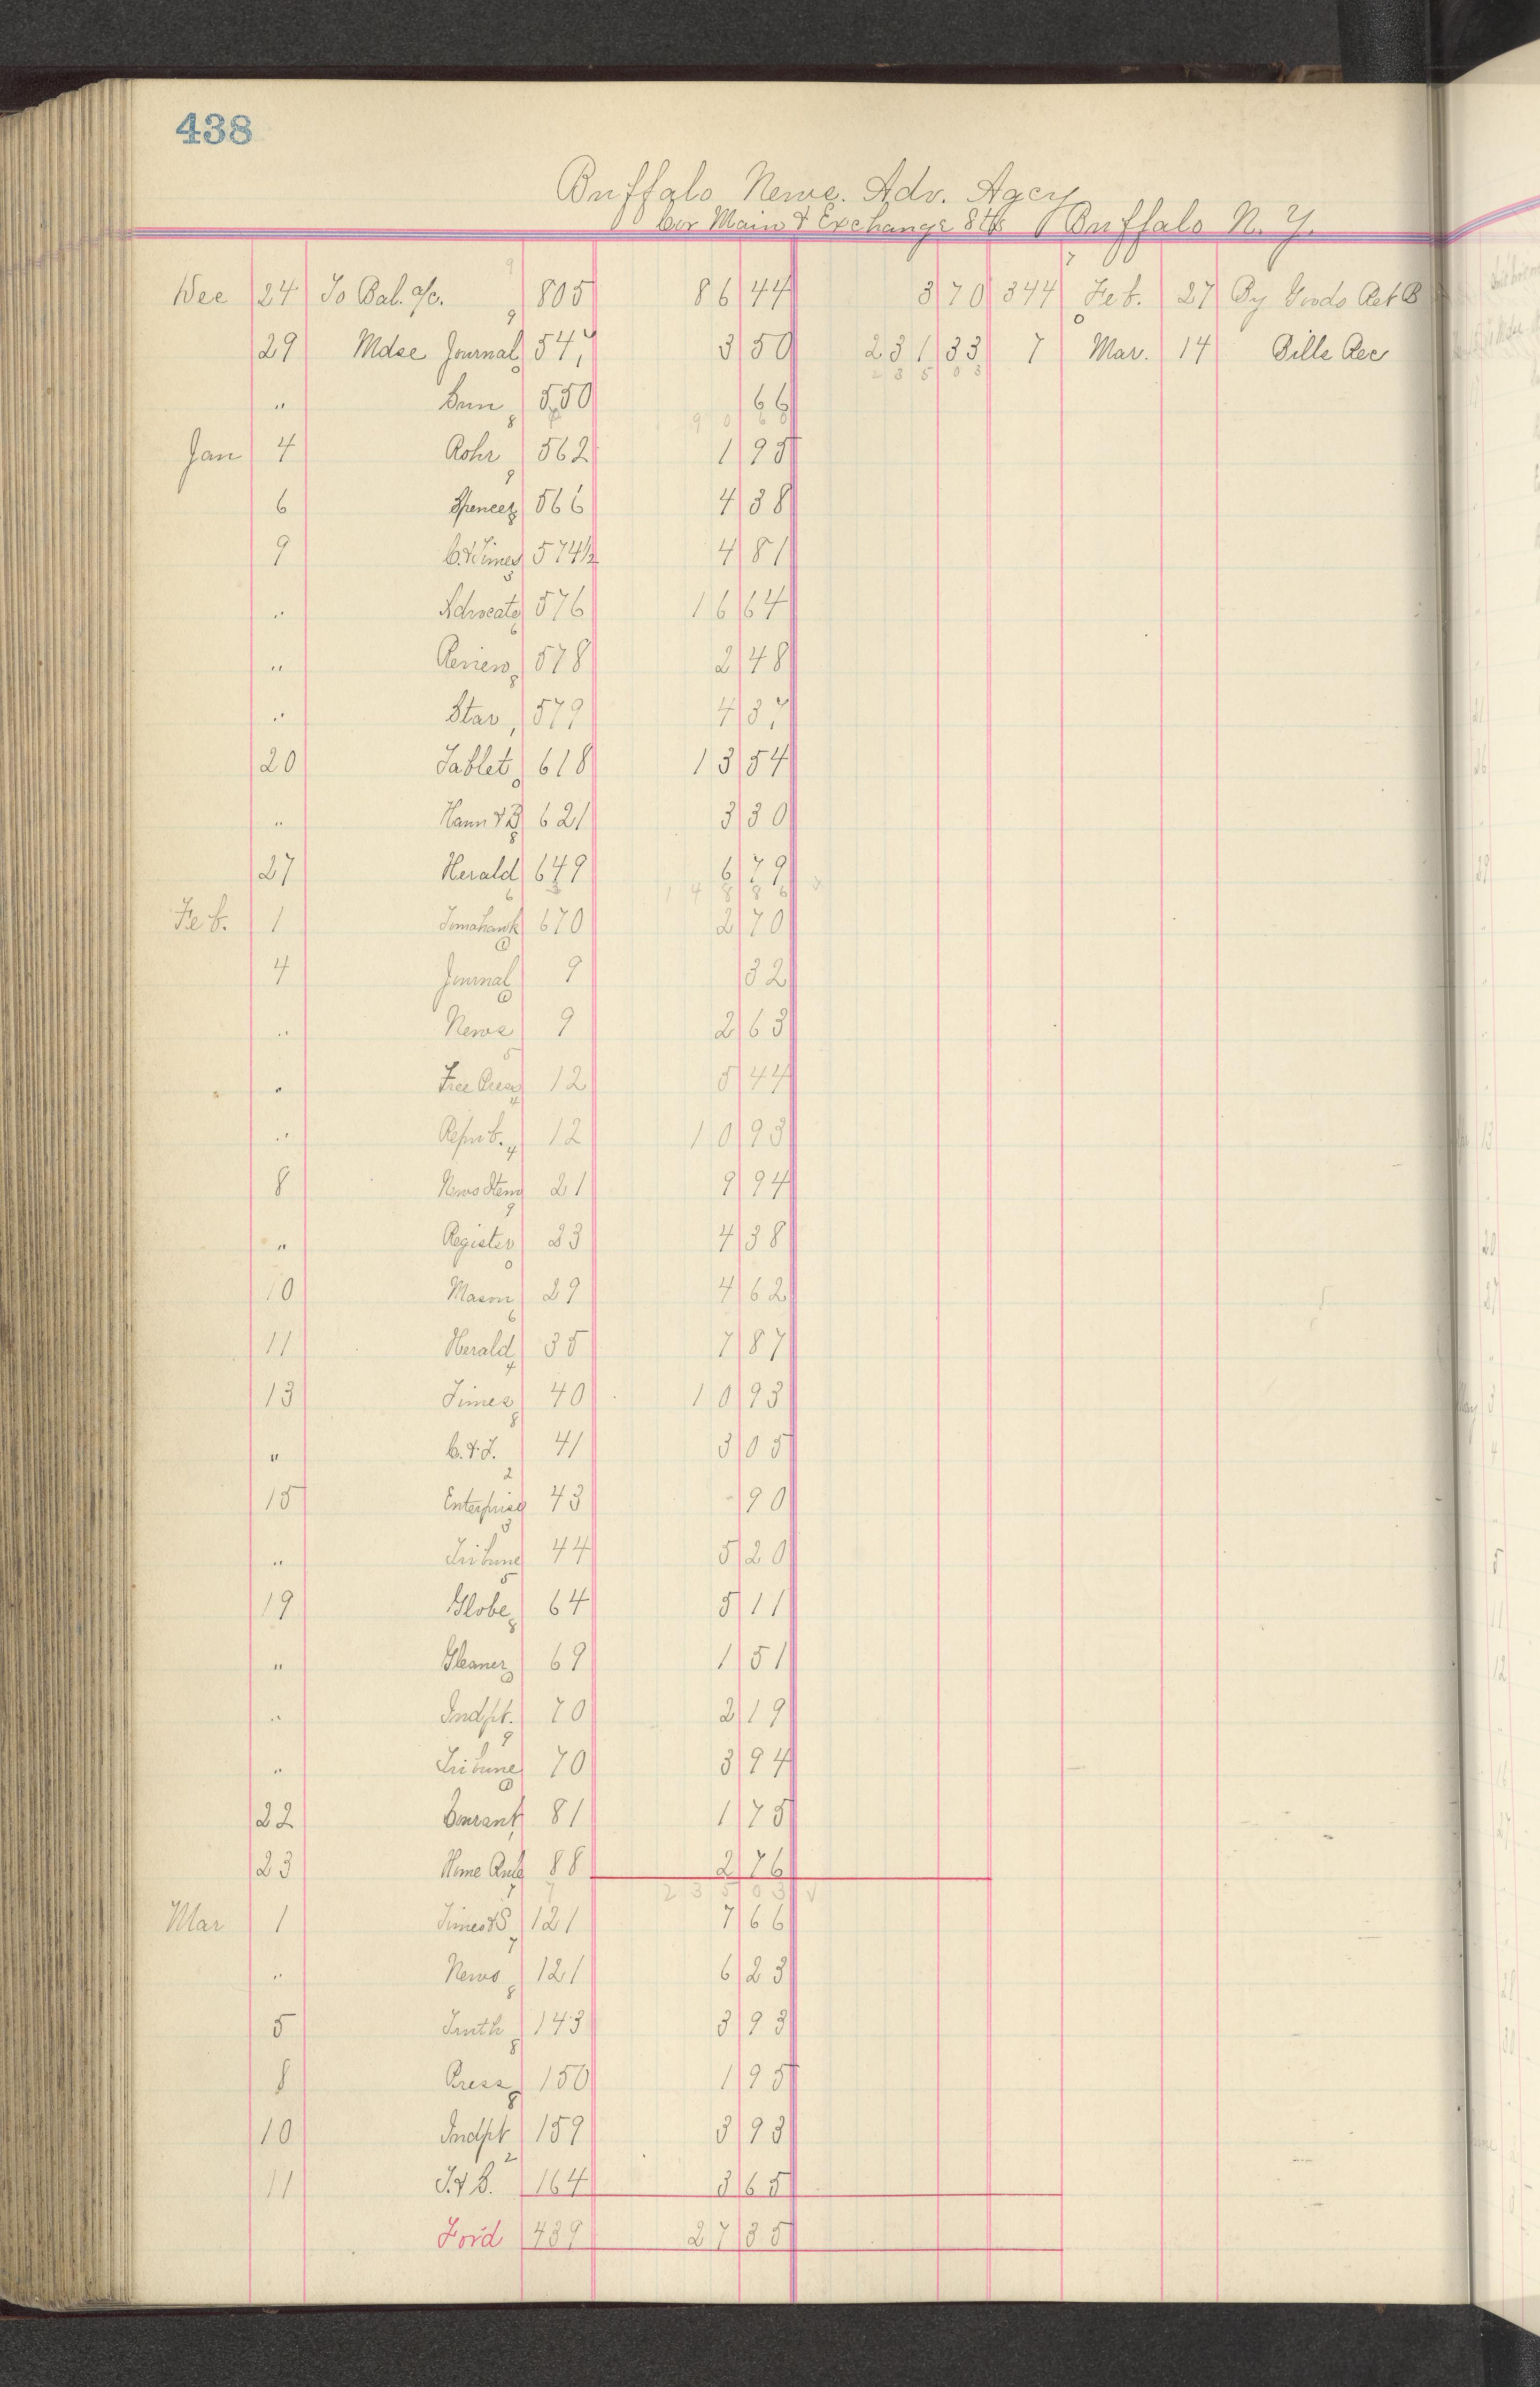 438
Buffalo News. Adv. Agcy
Cor Main & Exchange Sts Buffalo N. Y.
Dec 24 To Bal. a/c. 805 86 44 3 70 344 Feb. 27 By Goods Ret B
29 Mdse Journal 547 3 50 231 33 7 Mar. 14 Bills Rec
235 03
" Sun 550 66
90 60
Jan 4 Rohr 562 1 95
6 Spencer 566 4 38
9 C. & Times 574½ 4 81
" Advocate 576 16 64
" Review 578 2 48
" Star 579 4 37
20 Tablet 618 13 54
" Hann & B 621 3 30
27 Herald 649 6 79
148 86
Feb. 1 Tomahawk 670 2 70
4 Journal 9 32
" News 9 2 63
" Free Press 12 5 44
" Repub. 12 10 93
8 News Item 21 9 94
" Register 23 4 38
10 Mason 29 4 62
11 Herald 35 7 87
13 Times 40 10 93
" C. & T. 41 3 05
15 Enterprise 43 90
" Tribune 44 5 20
19 Globe 64 5 11
" Gleaner 69 1 51
" Indpt. 70 2 19
" Tribune 70 3 94
22 Courant 81 1 75
23 Home Rule 88 2 76
235 03 √
Mar 1 Times & S 121 7 66
" News 121 6 23
5 Truth 143 3 93
8 Press 150 1 95
10 Indpt 159 3 93
11 T. & S. 164 3 65
For'd 439 27 35